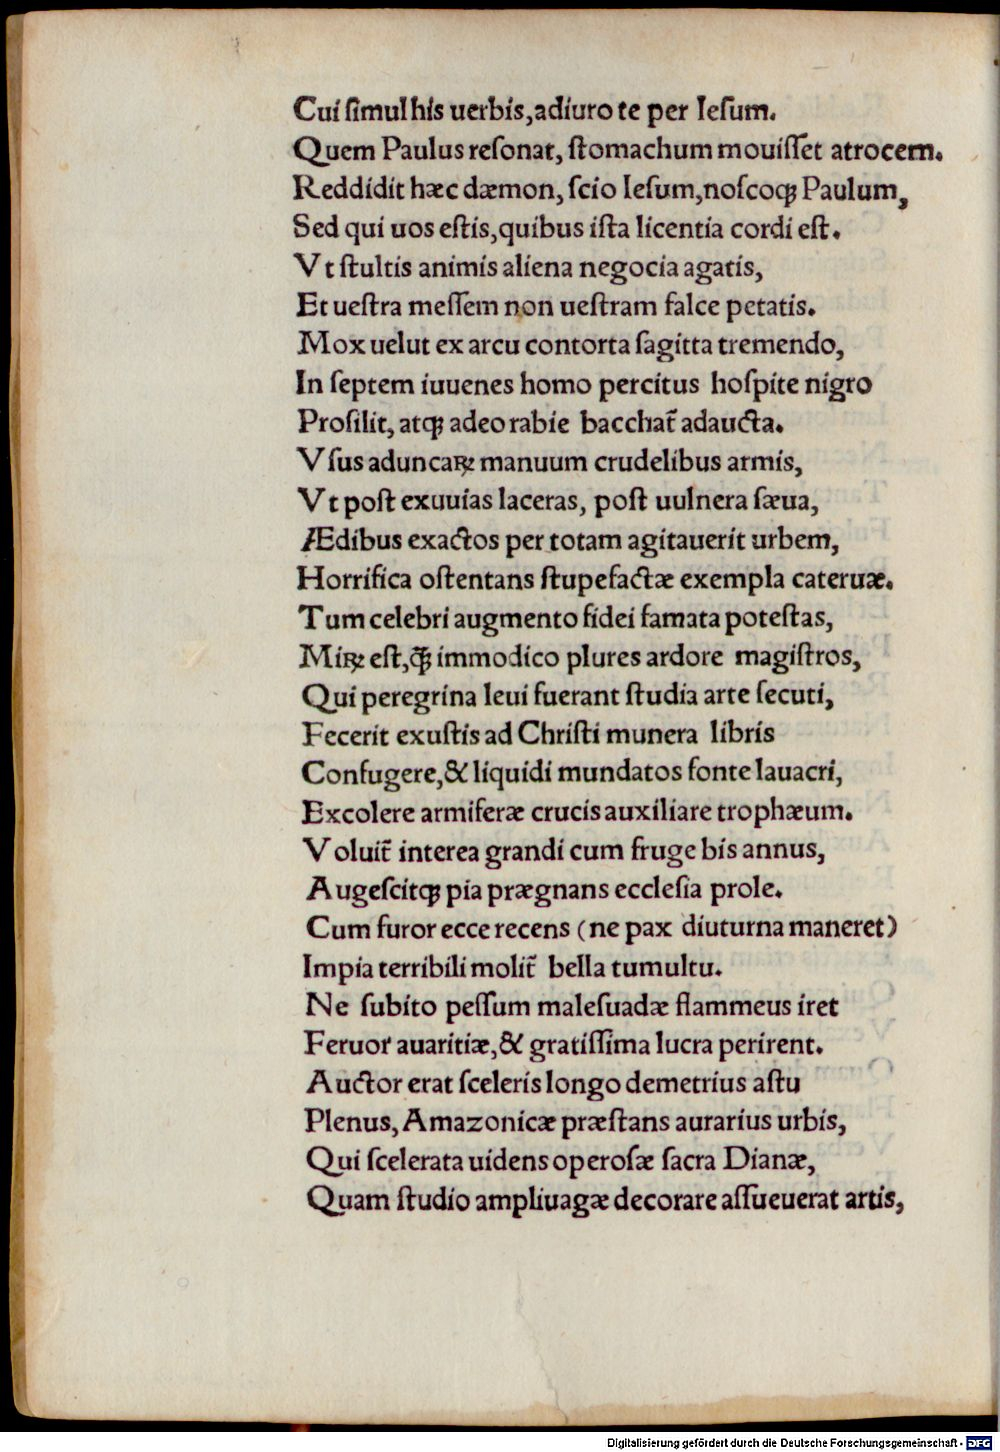 Cui ſimul his uerbis,adiuro te per Ieſum.
Quem Paulus reſonat, ſtomachum mouiſſet atrocem.
Reddidit hæc dæmon, ſcio Ieſum,noſcoqꝫ Paulum,
Sed qui uos eſtis,quibus iſta licentia cordi eſt.
Vt ſtultis animis aliena negocia agatis,
Et ueſtra meſſem non ueſtram falce petatis.
Mox uelut ex arcu contorta ſagitta tremendo,
In ſeptem iuuenes homo percitus hoſpite nigro
Proſilit, atqꝫ adeo rabie bacchat̃ adaucta.
Vſus aduncaꝝ manuum crudelibus armis,
Vt poſt exuuias laceras, poſt uulnera ſæua,
Ædibus exactos per totam agitauerit urbem,
Horrifica oſtentans ſtupefactæ exempla cateruæ.
Tum celebri augmento fidei famata poteſtas,
Miꝝ eſt,q̃ꝫ immodico plures ardore magiſtros,
Qui peregrina leui fuerant ſtudia arte ſecuti,
Fecerit exuſtis ad Chriſti munera libris
Confugere,& liquidi mundatos fonte lauacri,
Excolere armiferæ crucis auxiliare trophæum.
Voluit̃ interea grandi cum fruge bis annus,
Augeſcitqꝫ pia prægnans eccleſia prole.
Cum furor ecce recens (ne pax diuturna maneret)
Impia terribili molit̃ bella tumultu.
Ne ſubito peſſum maleſuadæ flammeus iret
Feruor auaritiæ,& gratiſſima lucra perirent.
Auctor erat ſceleris longo demetrius aſtu
Plenus, Amazonicæ præſtans aurarius urbis,
Qui ſcelerata uidens operoſæ ſacra Dianæ,
Quam ſtudio ampliuagæ decorare aſſueuerat artis,
Digitalisierung gefördert durch die Deutsche Forschungsgemeinschaft - DFG